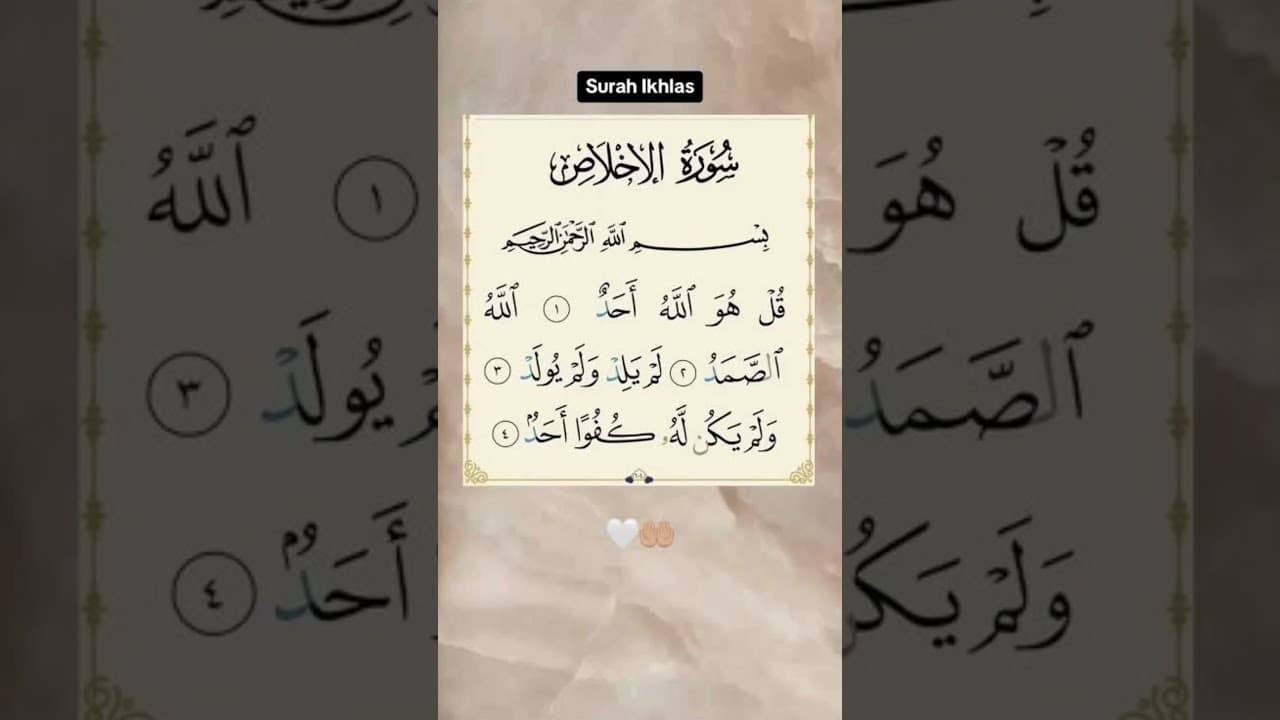 Surah Ikhlas
سُورَةُ الإِخْلَاصِ
بِسْمِ ٱللَّهِ ٱلرَّحْمَٰنِ ٱلرَّحِيمِ
قُلْ هُوَ ٱللَّهُ أَحَدٌ ١ ٱللَّهُ
ٱلصَّمَدُ ٢ لَمْ يَلِدْ وَلَمْ يُولَدْ ٣
وَلَمْ يَكُن لَّهُۥ كُفُوًا أَحَدٌۢ ٤